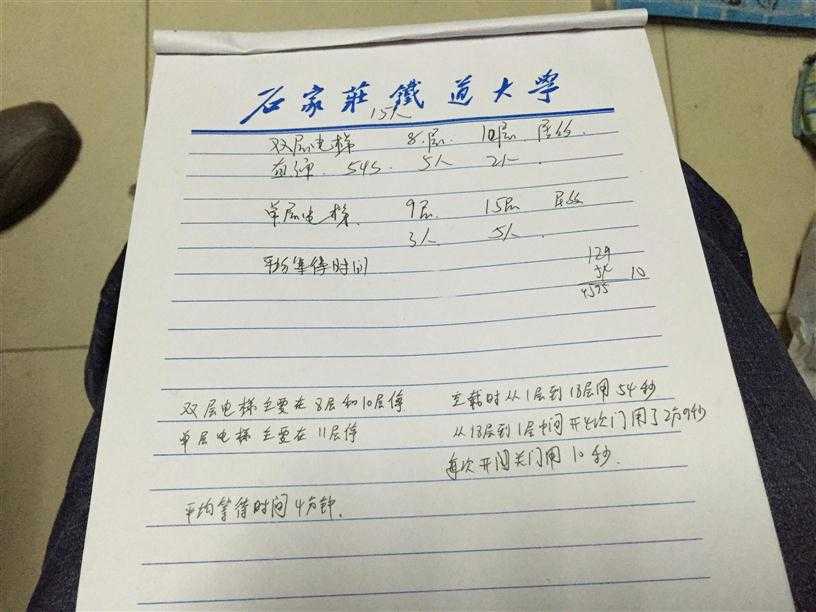 石家莊鐵道大學
13人
双层电梯 8层. 10层. 居多.
直弹. 54S. 5人 2人.
单层电梯. 9层. 15层 居多
3人 5人.
平均等待时间
129
54 10
双层电梯主要在8层和10层停 空载时从1层到18层用54秒
单层电梯主要在11层停 从18层到1层中间开4次门用了2分9秒
每次开门关门用10秒.
平均等待时间4分钟.